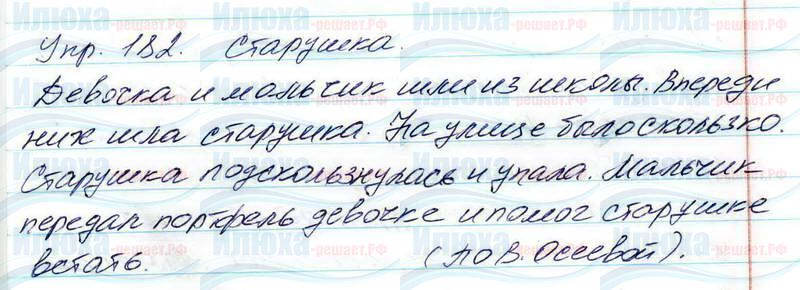 Упр. 182. Старушка.
Девочка и мальчик шли из школы. Впереди
них шла старушка. На улице было скользко.
Старушка подскользнулась и упала. Мальчик
передал портфель девочке и помог старушке
встать. (По В. Осеевой).